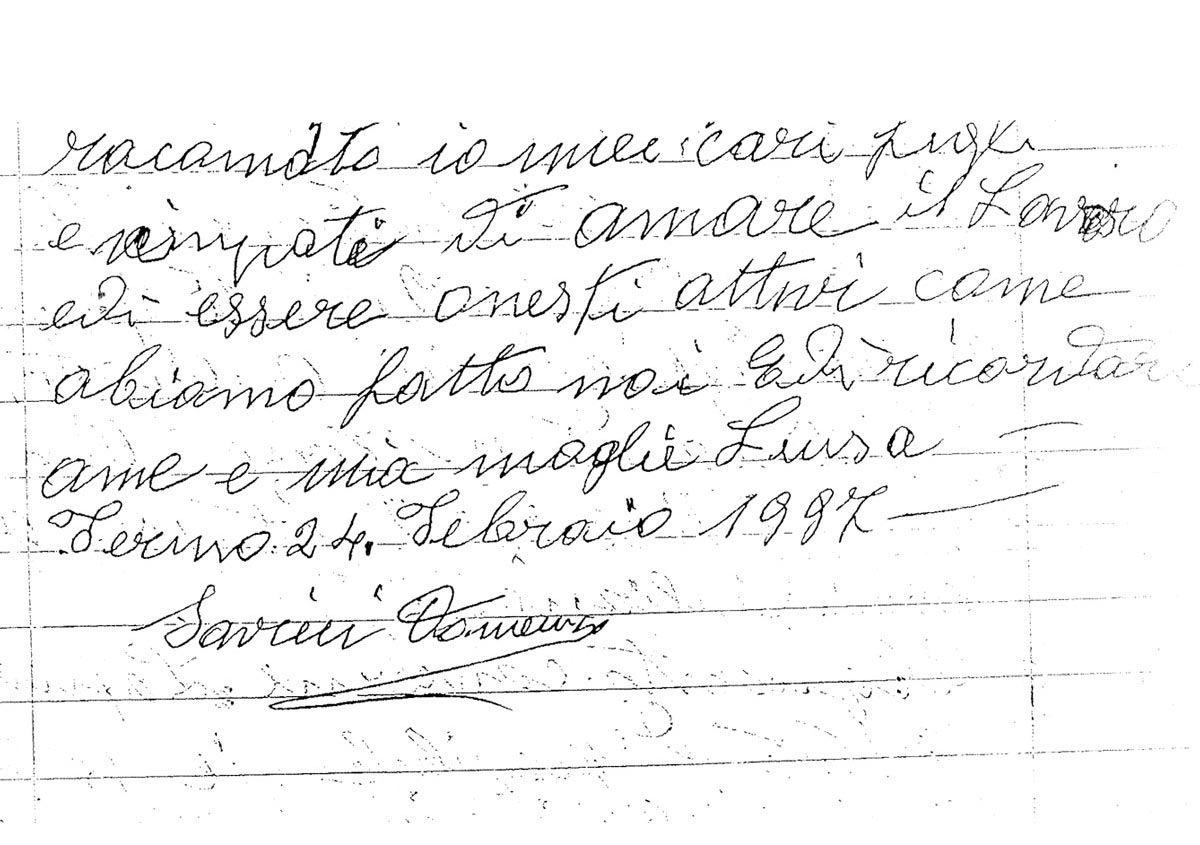 racamdto io miei cari figli
e nipoti di amare il Lavoro
edi essere onesti attivi come
abiamo fatto noi Edi ricordare
ame e mia moglie Luisa
Fermo 24. Febraio 1997
Savini Domenico